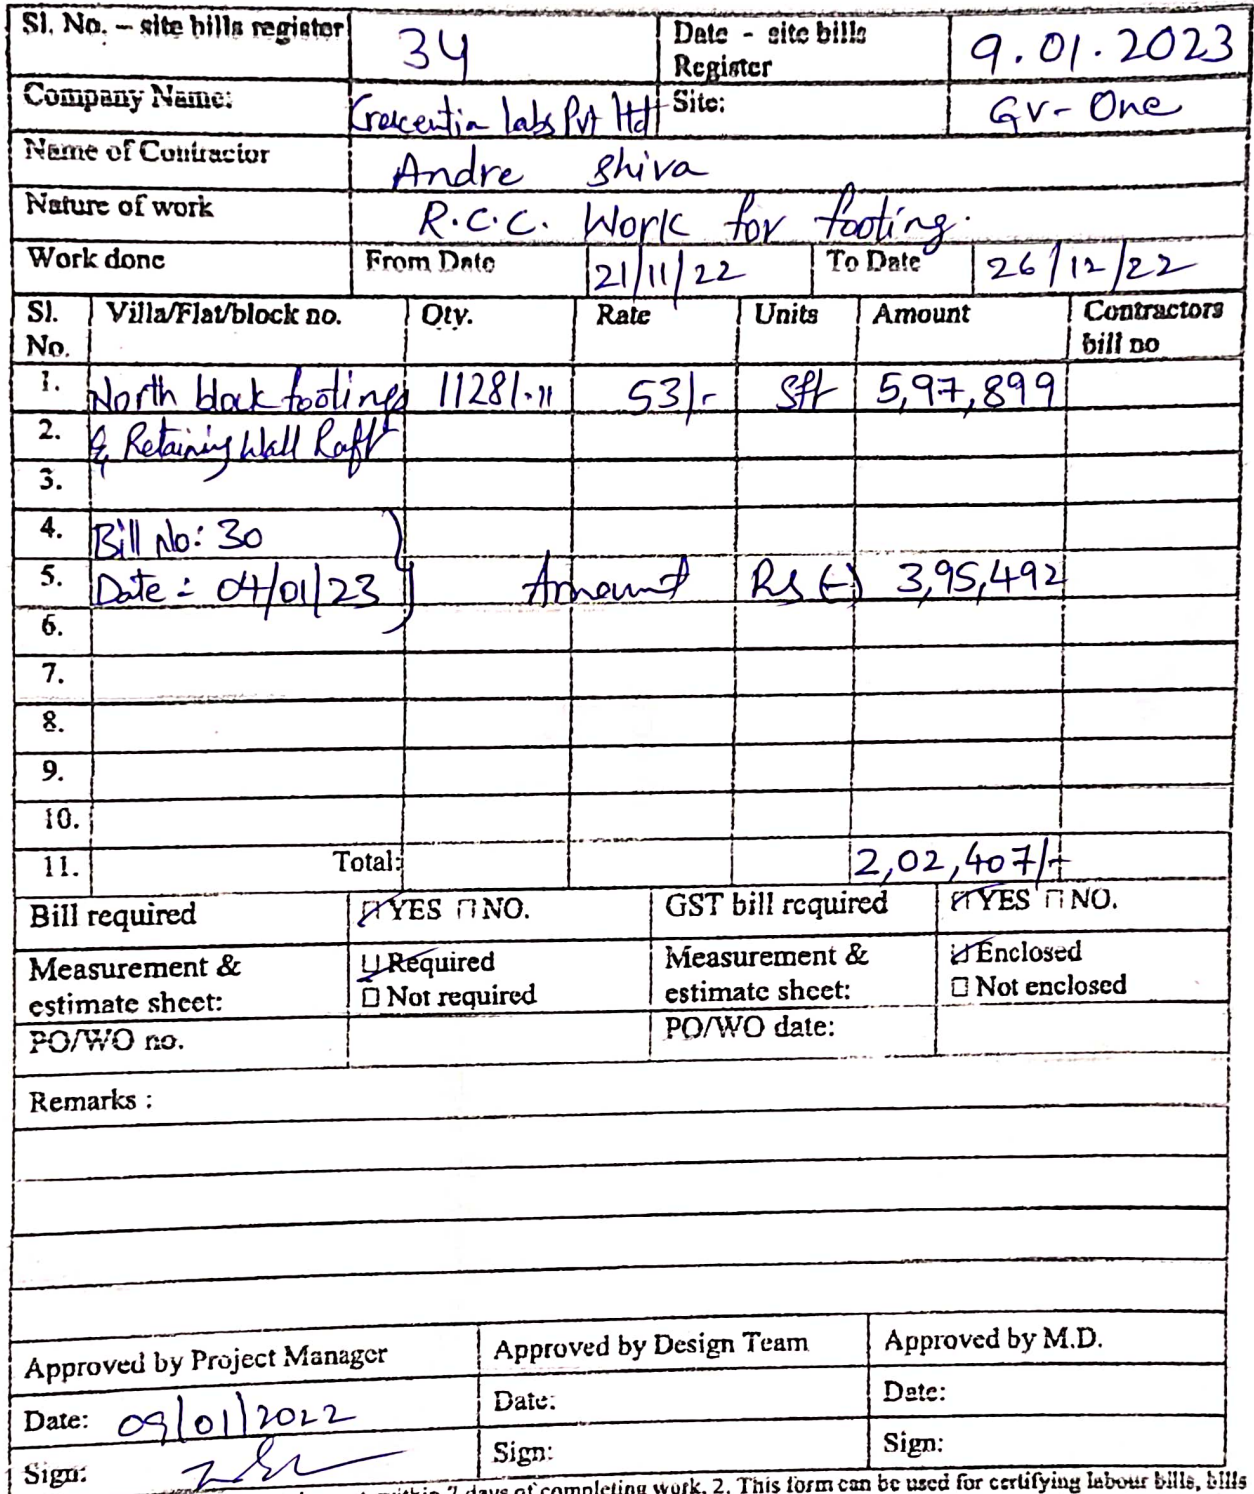 Sl. No. – site bills register 34 Date - site bills Register 9.01.2023
Company Name: Crescentia labs Pvt ltd Site: GV-One
Name of Contractor Andre Shiva
Nature of work R.C.C. Work for footing.
Work done From Date 21/11/22 To Date 26/12/22
Sl. No. Villa/Flat/block no. Qty. Rate Units Amount Contractors bill no
1. North block footings 11281.11 53/- Sft 5,97,899
2. & Retaining Wall Raft
3.
4. Bill No: 30
5. Date: 04/01/23 Amount Rs (-) 3,95,492
6.
7.
8.
9.
10.
11. Total: 2,02,407/-
Bill required YES NO. GST bill required YES NO.
Measurement & estimate sheet: Required Measurement & estimate sheet: Enclosed
Not required Not enclosed
PO/WO no. PO/WO date:
Remarks :
Approved by Project Manager Approved by Design Team Approved by M.D.
Date: 09/01/2022 Date: Date:
Sign: Sign: Sign:
7 days of completing work. 2. This form can be used for certifying labour bills, bills